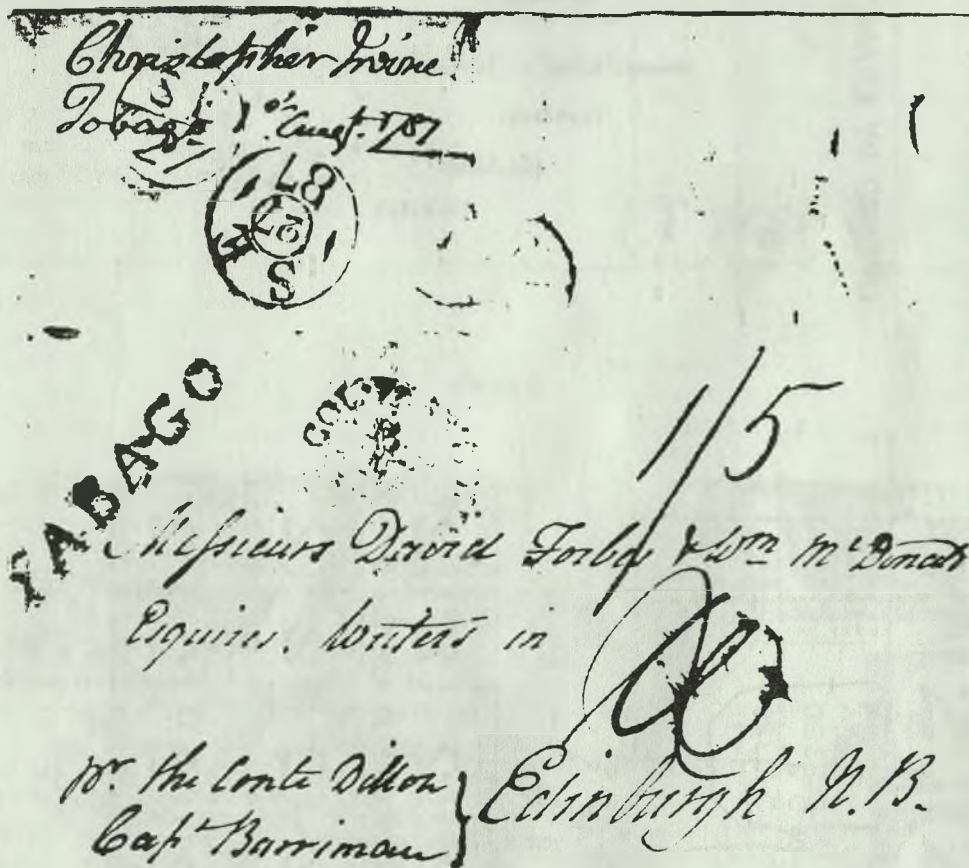 Christopher Irvine
Tobago 1st Augt. 1787
87
S
TABAGO
COL
1/5
Messieurs David Forbes & Wm Mc Donald
Esquires. Writers in
Edinburgh N.B.
pr. the Conte Dillon
Capt Barriman